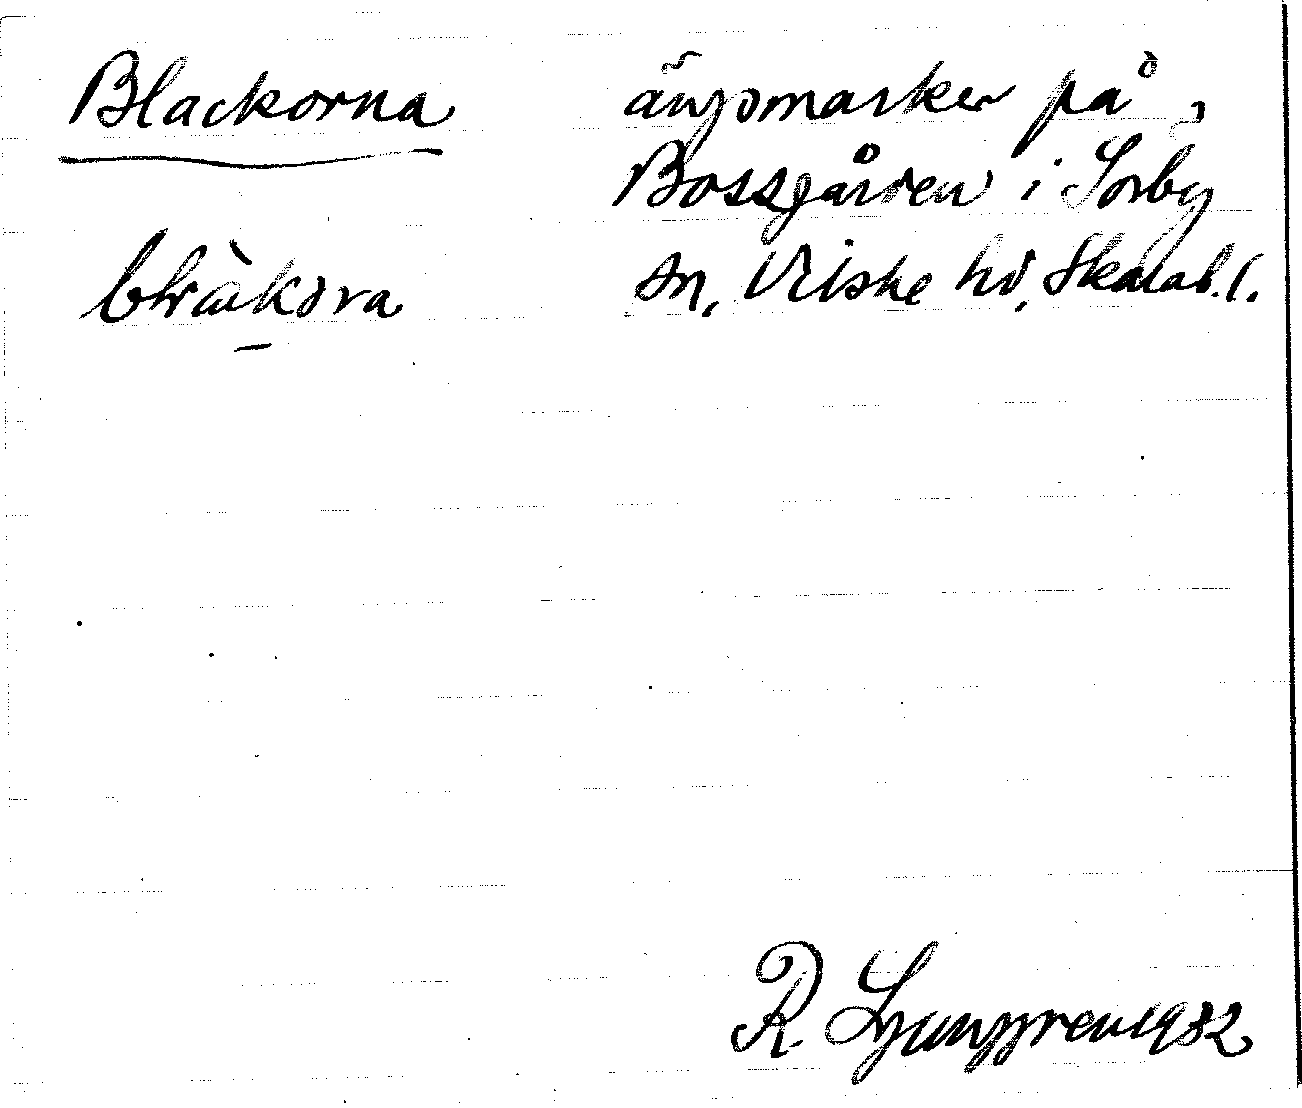 Blackorna
ängsmarker på
Bossgården i Sörby
sn, Vilske hd, Skarab. l.
R Ljunggren 1982